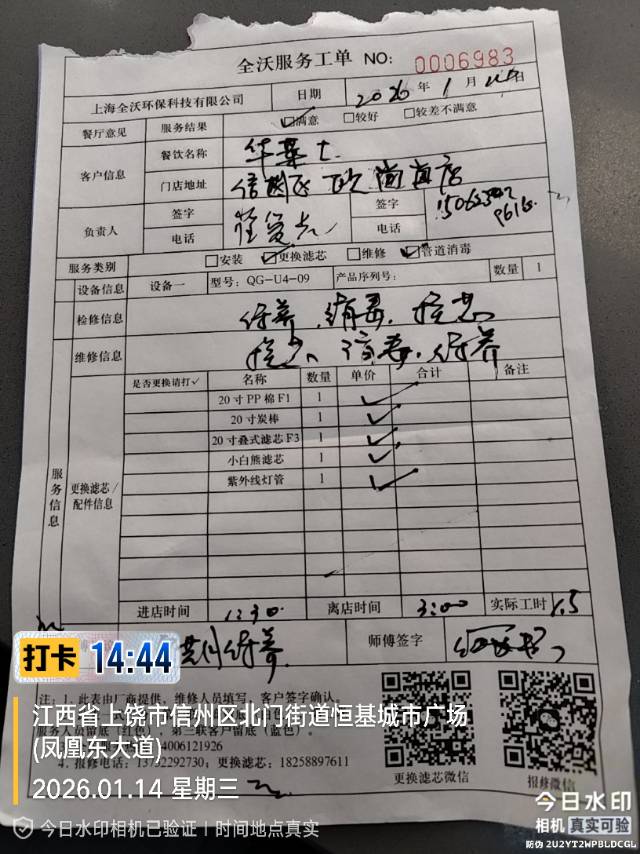 全沃服务工单 NO: 0006983
上海全沃环保科技有限公司 日期 2026年1月14日
餐厅意见 服务结果 ☑满意 □较好 □较差不满意
客户信息 餐饮名称 华莱士
门店地址 信州区
负责人 签字 签字
电话 电话
服务类别 □安装 ☑更换滤芯 □维修 ☑管道消毒
设备信息 设备一 型号: QG-U4-09 产品序列号: 数量 1
检修信息 保养 消毒
维修信息 消毒 保养
服务信息 更换滤芯/配件信息
是否更换请打√ 名称 数量 单价 合计 备注
20寸PP棉F1 1 ✓
20寸炭棒 1 ✓
20寸叠式滤芯F3 1 ✓
小白熊滤芯 1 ✓
紫外线灯管 1 ✓
进店时间 1:30 离店时间 3:00 实际工时 1.5
保养 师傅签字
打卡 14:44
注: 1. 此表由厂商提供。维修人员填写。客户签字确认。
江西省上饶市信州区北门街道恒基城市广场
(凤凰东大道)
服务人员留底(红色)。第三联客户留底(蓝色)。
4006121926
4. 报修电话: 18258897611
2026.01.14 星期三
更换滤芯微信 报修微信
今日水印相机已验证 | 时间地点真实
今日水印
相机 真实可验
防伪 2U2YT2WPBLDCGL